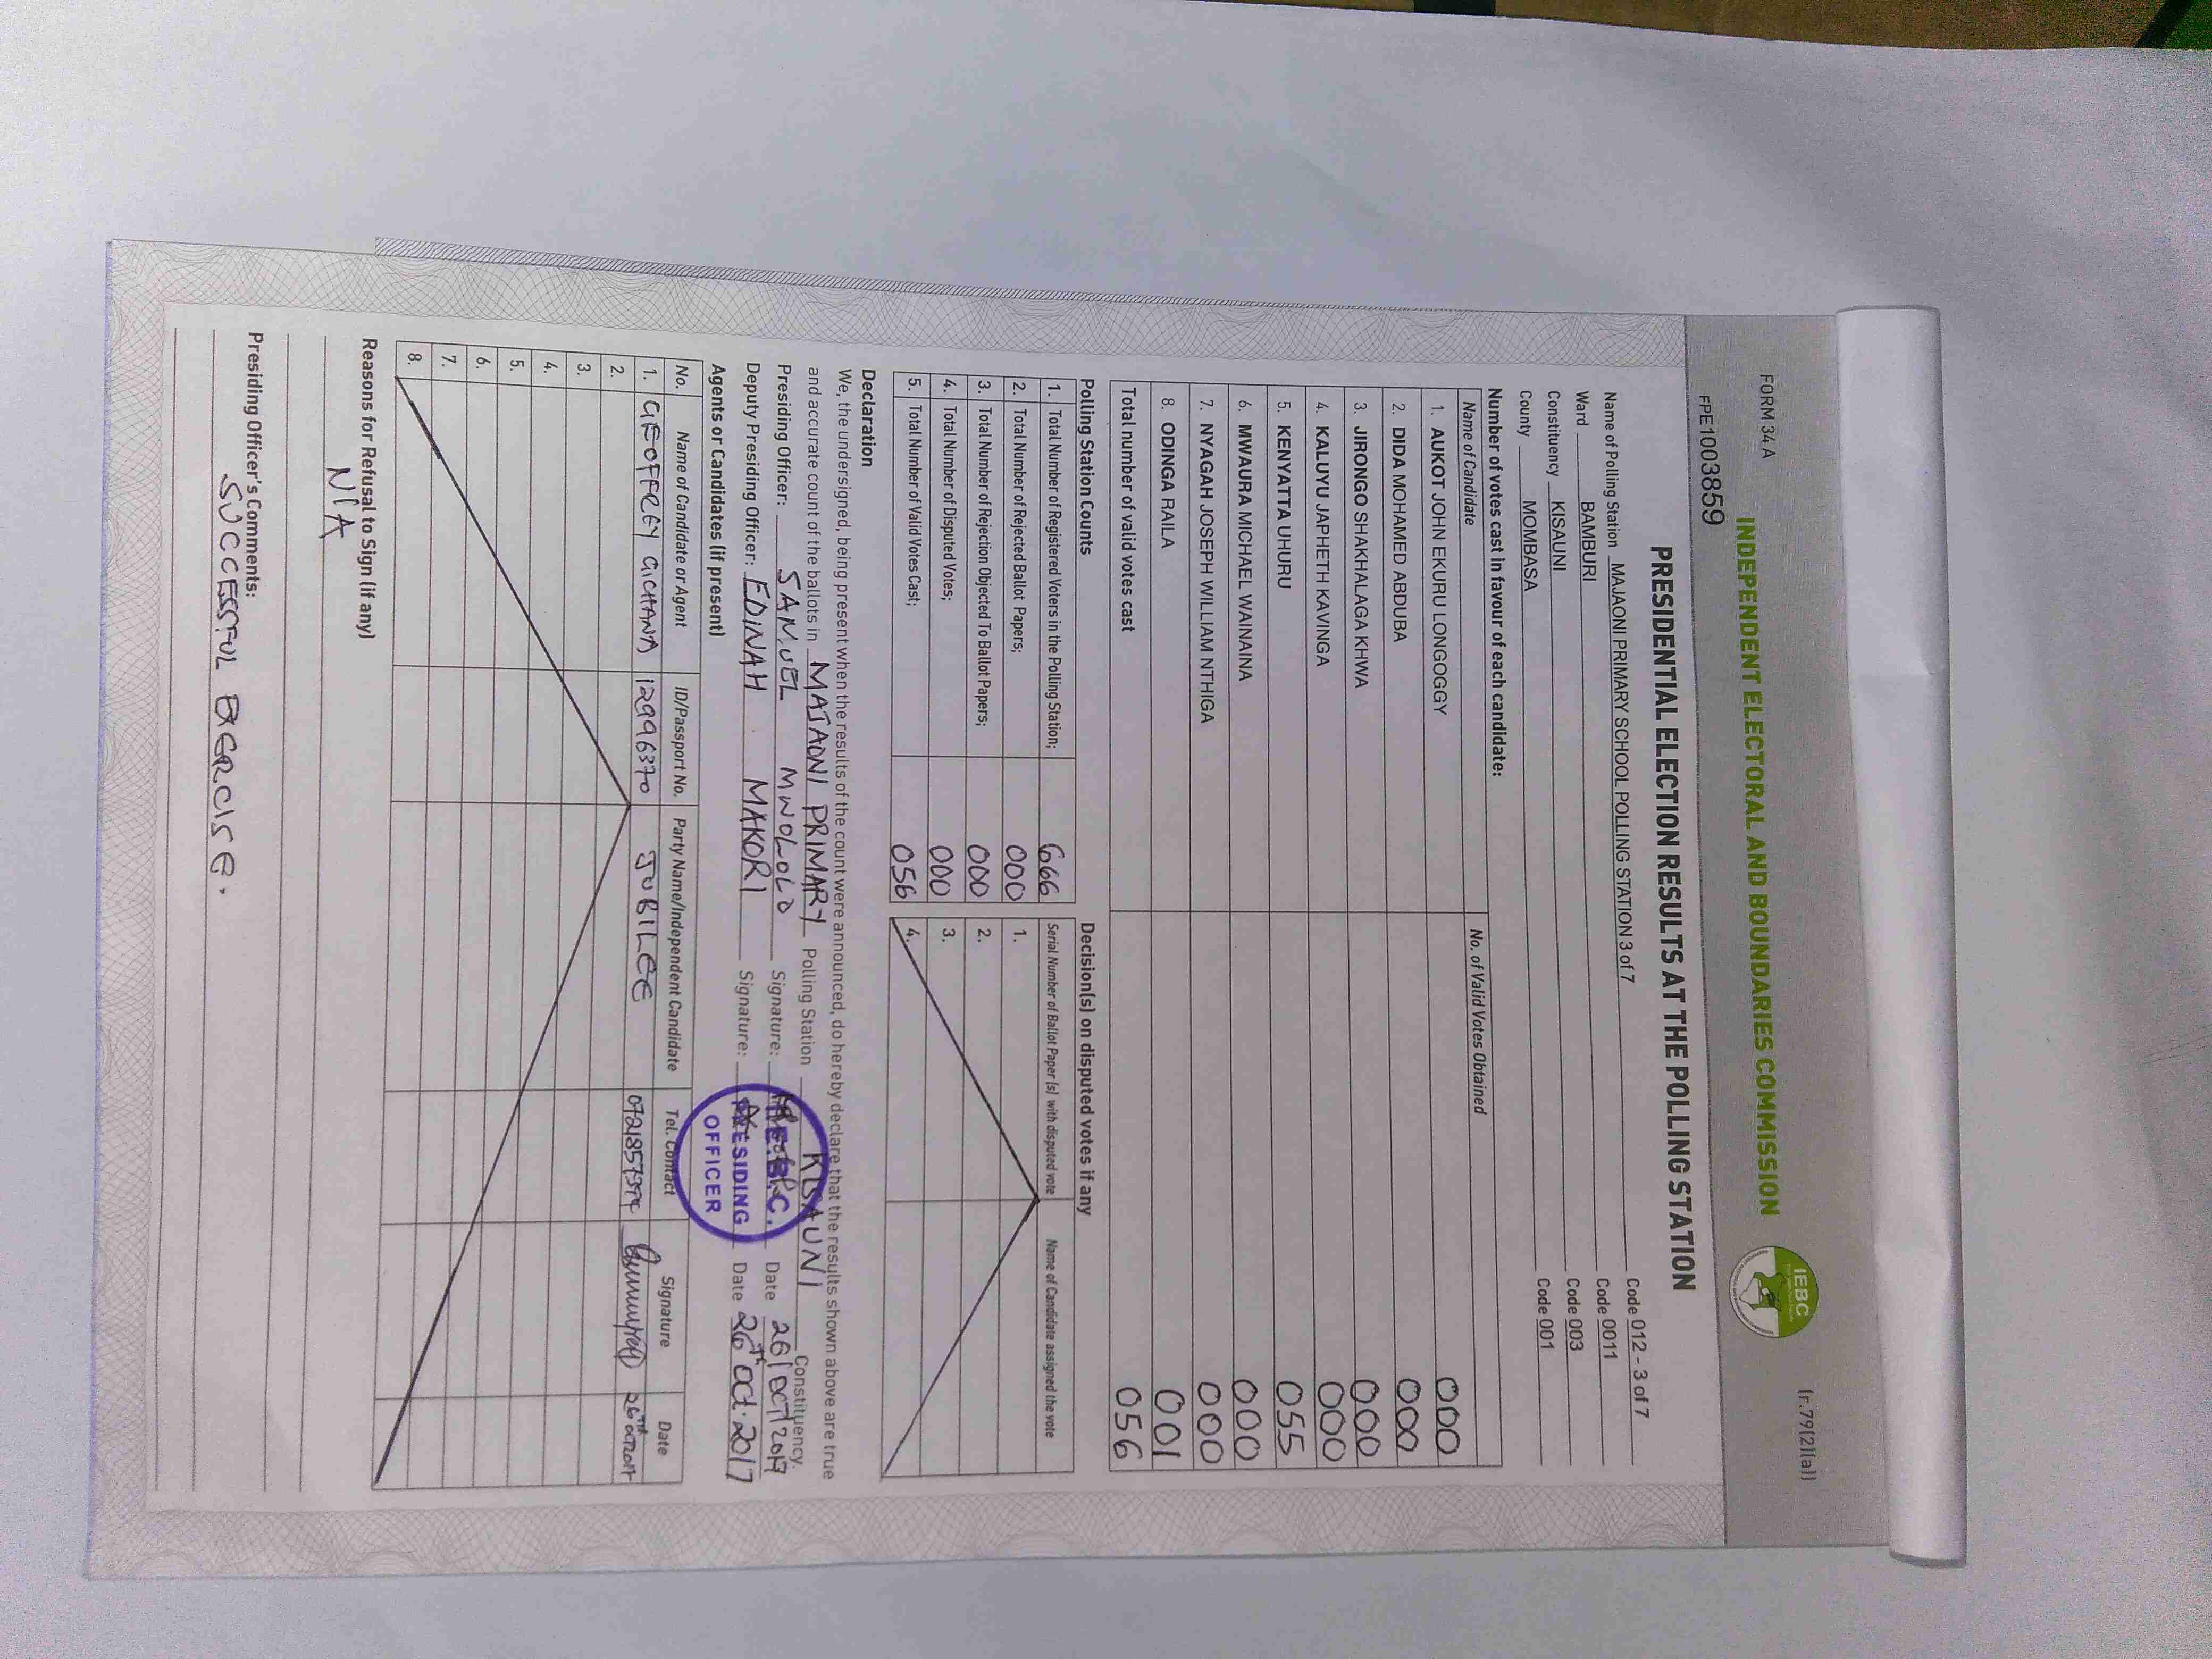 FORM 34 A
(r.79(2)(a))
INDEPENDENT ELECTORAL AND BOUNDARIES COMMISSION
IEBC
FPE1003859
PRESIDENTIAL ELECTION RESULTS AT THE POLLING STATION
Name of Polling Station MAJAONI PRIMARY SCHOOL POLLING STATION 3 of 7 Code 012 - 3 of 7
Ward BAMBURI Code 0011
Constituency KISAUNI Code 003
County MOMBASA Code 001
Number of votes cast in favour of each candidate:
Name of Candidate No. of Valid Votes Obtained
1. AUKOT JOHN EKURU LONGOGGY 000
2. DIDA MOHAMED ABDUBA 000
3. JIRONGO SHAKHALAGA KHWA 000
4. KALUYU JAPHETH KAVINGA 000
5. KENYATTA UHURU 055
6. MWAURA MICHAEL WAINAINA 000
7. NYAGAH JOSEPH WILLIAM NTHIGA 000
8. ODINGA RAILA 001
Total number of valid votes cast 056
Polling Station Counts Decision(s) on disputed votes if any
1. Total Number of Registered Voters in the Polling Station; 666 Serial Number of Ballot Paper (s) with disputed vote Name of Candidate assigned the vote
2. Total Number of Rejected Ballot Papers; 000 1.
3. Total Number of Rejection Objected To Ballot Papers; 000 2.
4. Total Number of Disputed Votes; 000 3.
5. Total Number of Valid Votes Cast; 056 4.
Declaration
We, the undersigned, being present when the results of the count were announced, do hereby declare that the results shown above are true
and accurate count of the ballots in MAJAONI PRIMARY Polling Station KISAUNI Constituency.
Presiding Officer: SAMUEL MWOLOLO Signature: Date 26/OCT/2017
Deputy Presiding Officer: EDINAH MAKORI Signature: Date 26TH Oct. 2017
I.E.B.C.
PRESIDING
OFFICER
Agents or Candidates (if present)
No. Name of Candidate or Agent ID/Passport No. Party Name/Independent Candidate Tel. Contact Signature Date
1. GEOFFREY GICHANA 12996370 JUBILEE 26TH OCT 2017
2.
3.
4.
5.
6.
7.
8.
Reasons for Refusal to Sign (if any)
N/A
Presiding Officer's Comments:
SUCCESSFUL EXERCISE.